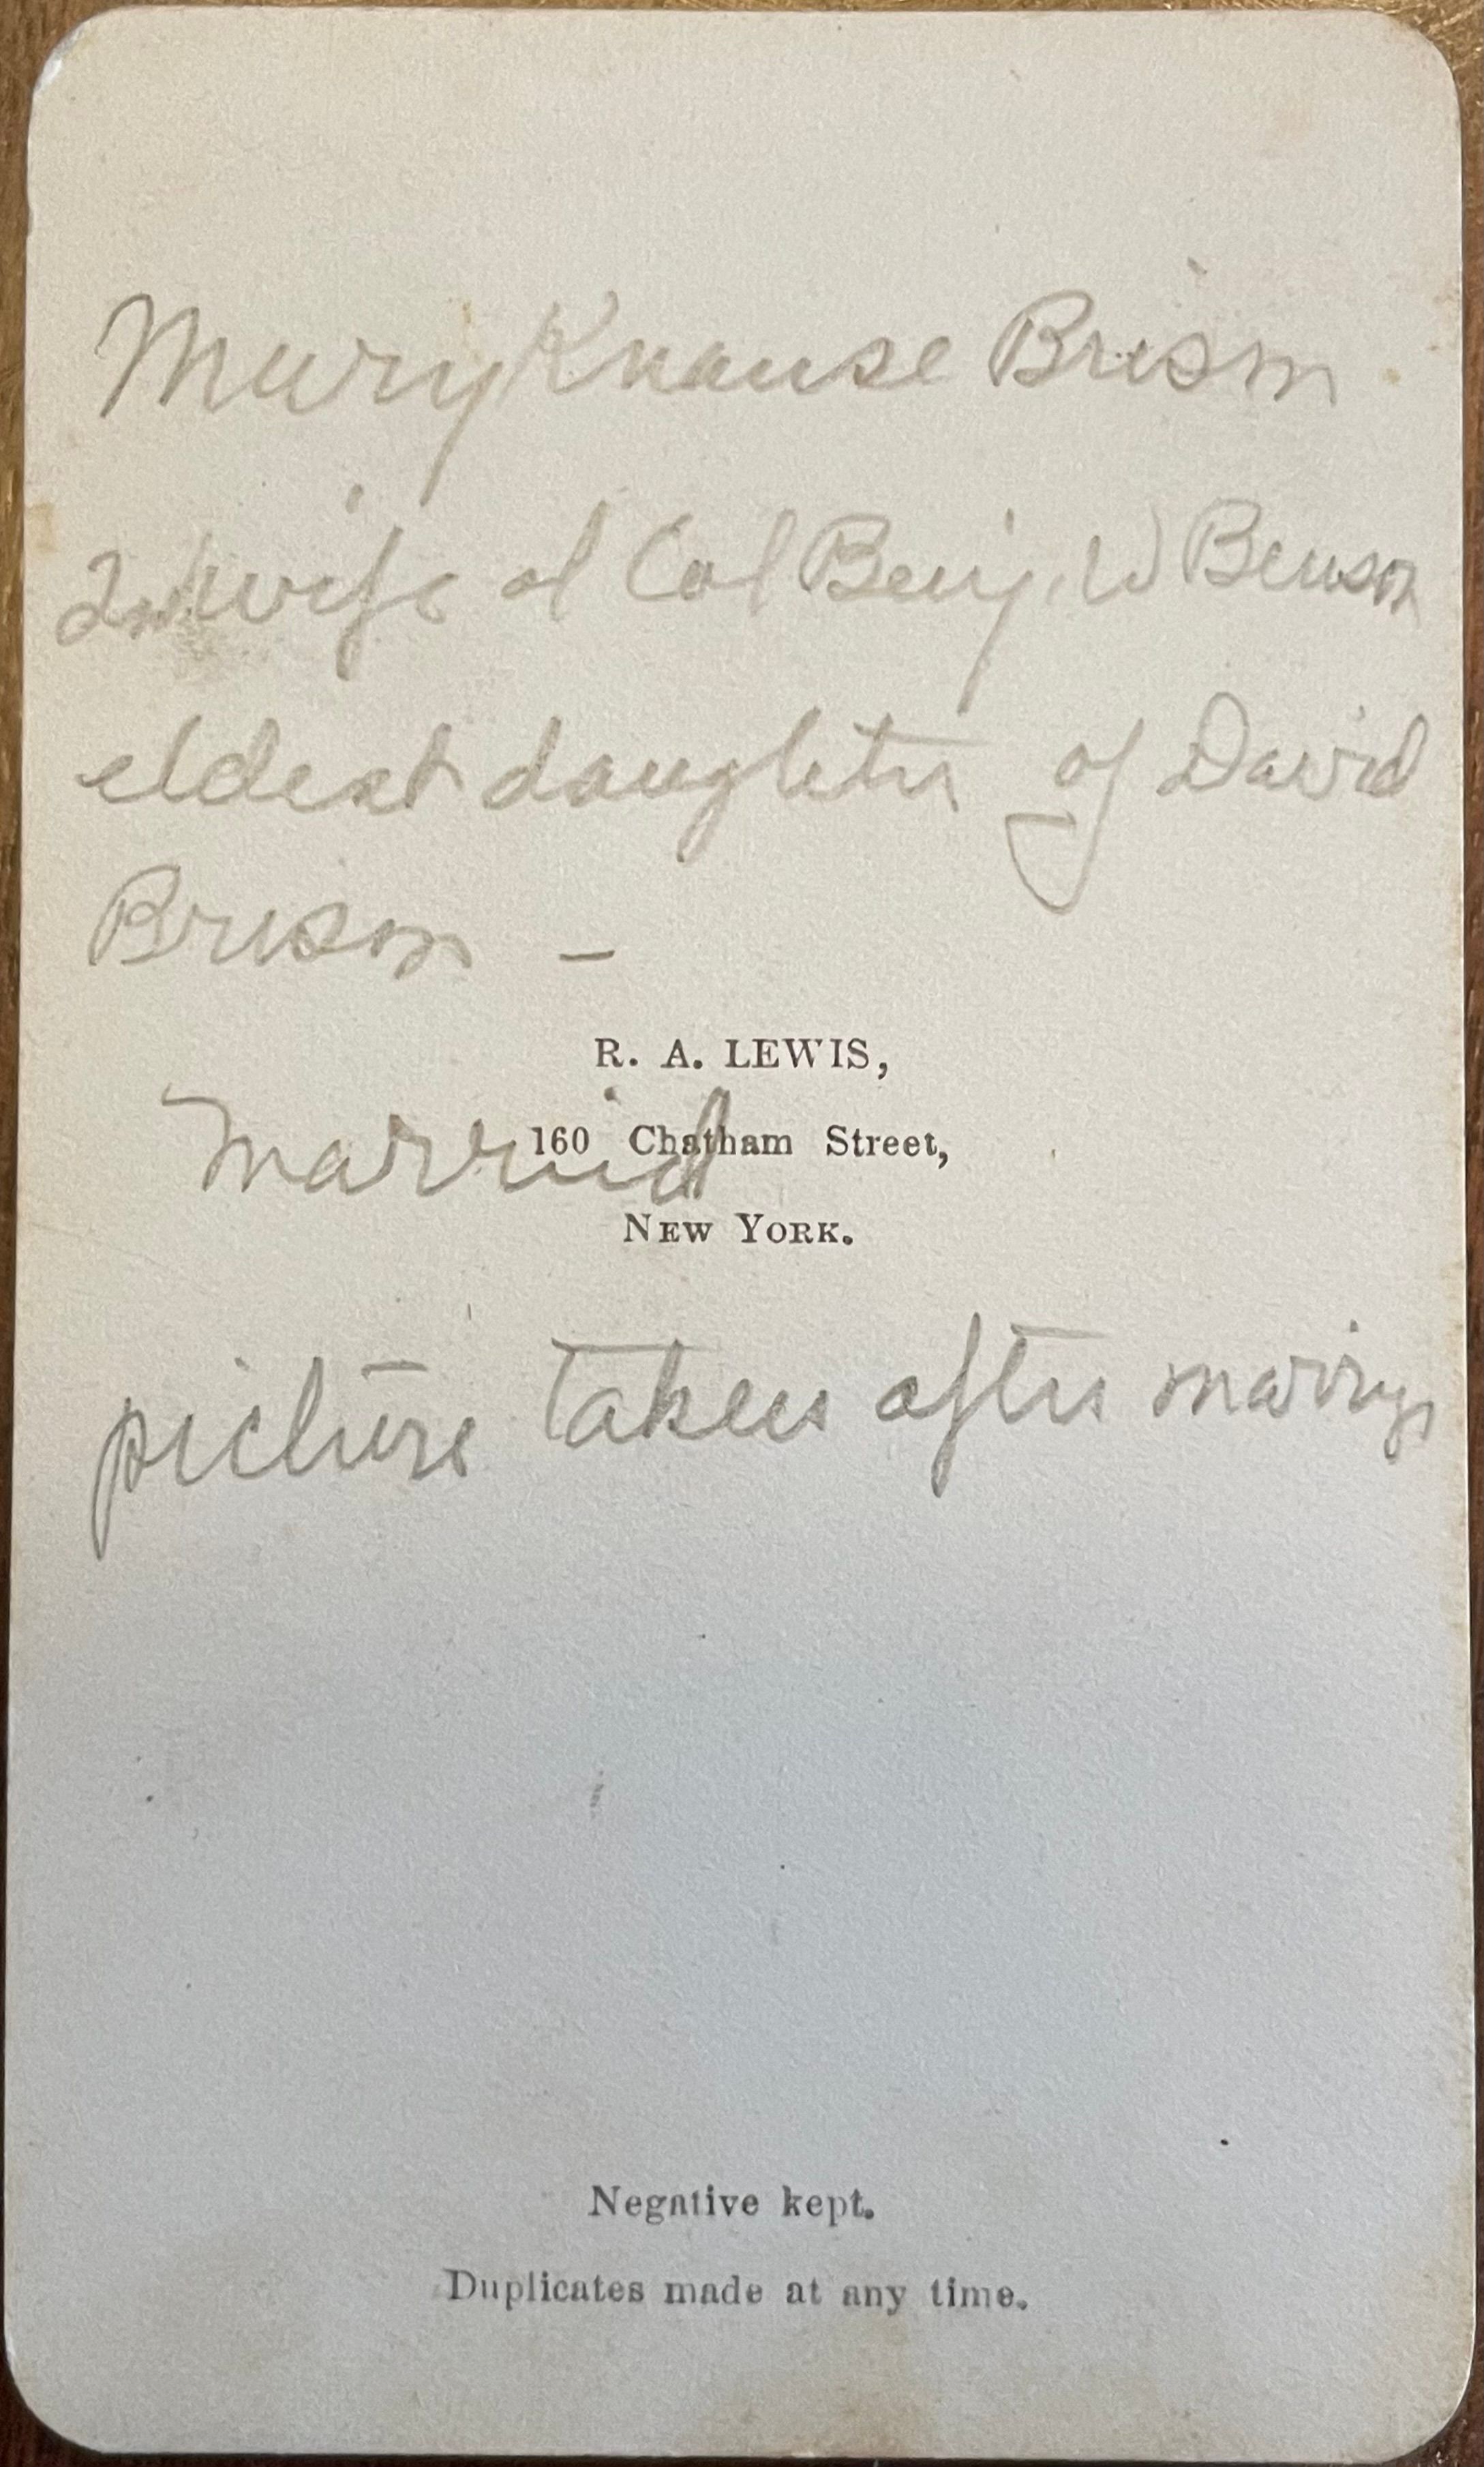 Mary Knause Brison
2nd wife of Col Benj. W Benson
eldest daughter of David
Brison -
R. A. LEWIS,
Married
160 Chatham Street,
NEW YORK.
picture taken after marriage
Negative kept.
Duplicates made at any time.